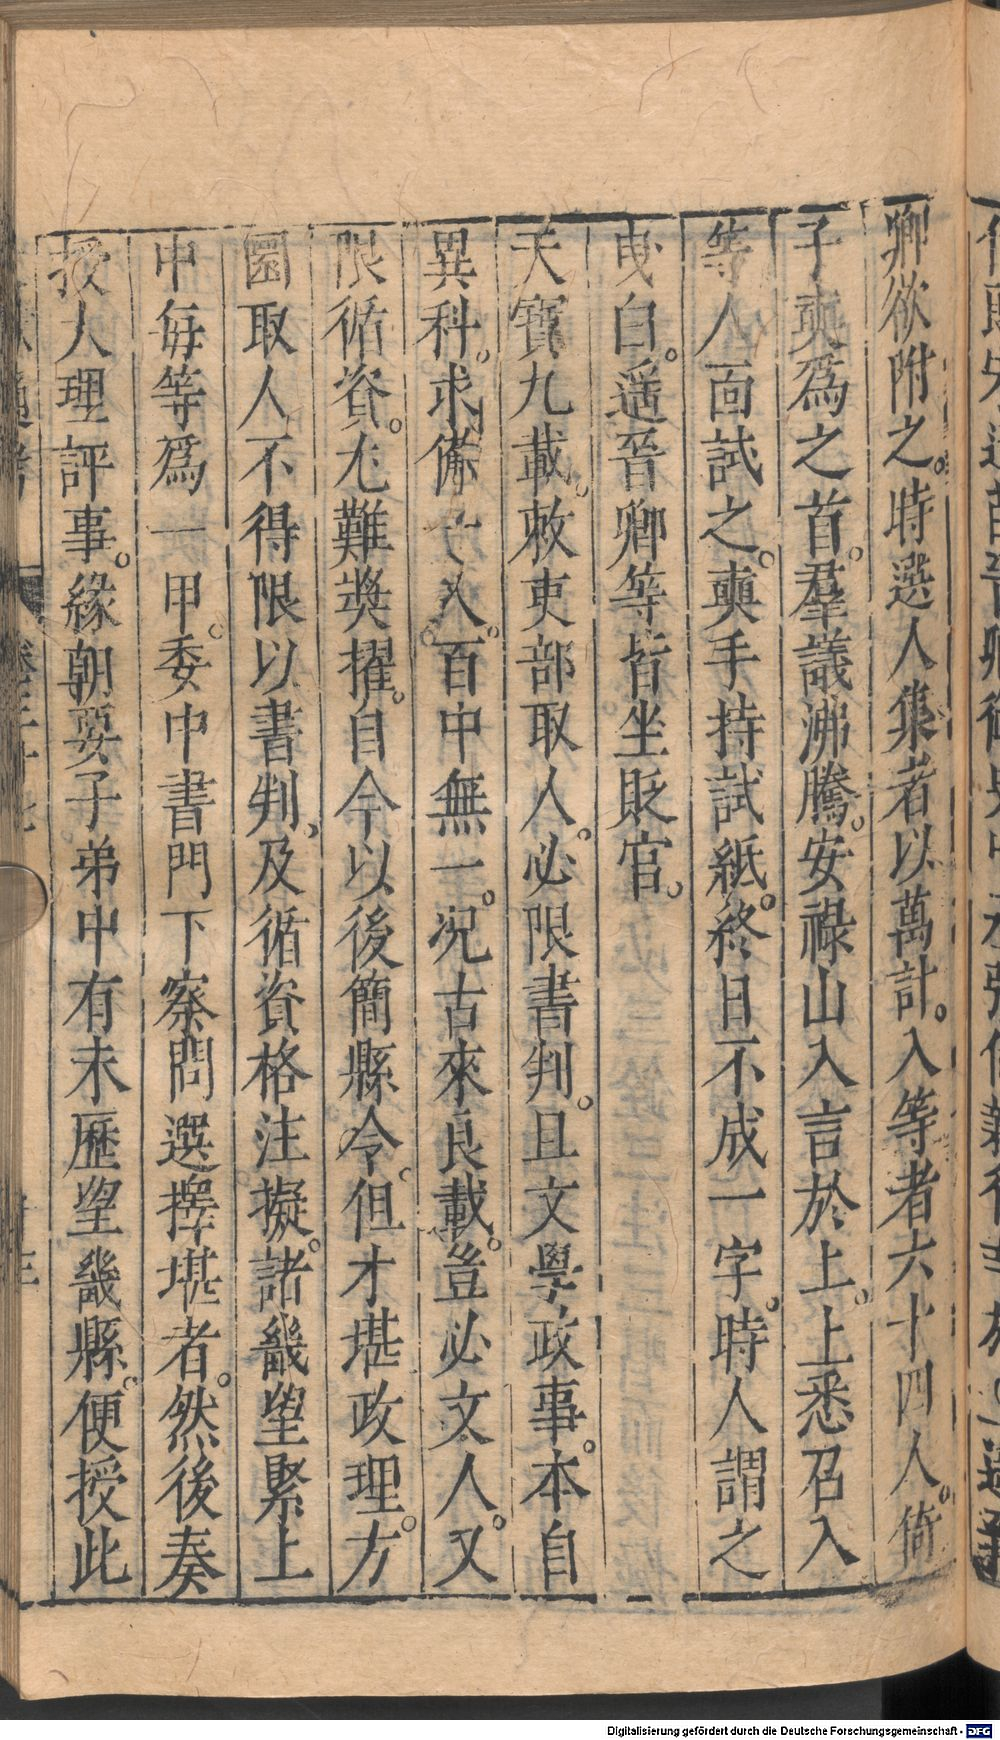 卿欲附之。時選人集者以萬計。入等者六十四人。倚
子奭爲之首。羣議沸騰。安祿山入言於上。上悉召入
等人面試之。奭手持試紙。終日不成一字。時人謂之
曳白。遥晉卿等皆坐貶官。
天寶九載。敕吏部取人。必限書判。且文學政事。本自
異科。求備一人。百中無一。況古來良載。豈必文人。又
限循資。尤難奬擢。自今以後簡縣令。但才堪政理。方
圓取人不得限以書判、及循資格注擬。諸畿望緊上
中每等爲一甲。委中書門下察問選擇堪者。然後奏
授大理評事。緣朝要子弟中有未歷望畿縣。便授此
Digitalisierung gefördert durch die Deutsche Forschungsgemeinschaft - DFG